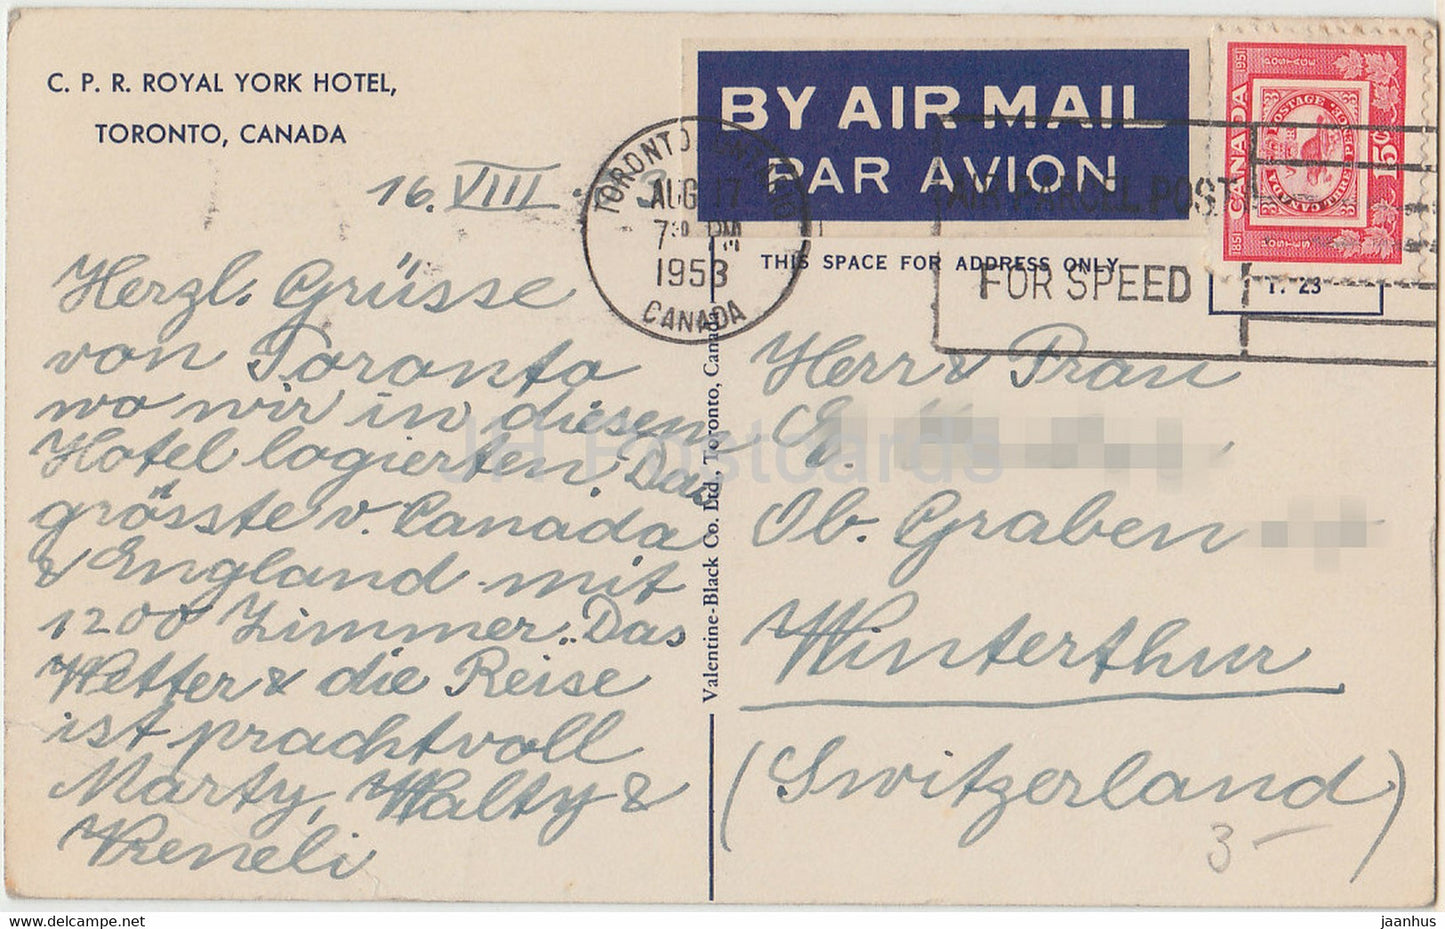 C. P. R. ROYAL YORK HOTEL,
TORONTO, CANADA
16. VIII. 53
Herzl. Grüsse
von Toronto
wo wir in diesem
Hotel logierten. Das
grösste v. Canada
& England mit
1200 Zimmer. Das
Wetter & die Reise
ist prachtvoll
Marty, Walty &
Vreneli
BY AIR MAIL
PAR AVION
TORONTO ONTARIO
AUG 17
7 30 PM
1953
CANADA
AIR PARCEL POST
FOR SPEED
CANADA
1851
1951
POSTAGE
POSTES
15¢
THIS SPACE FOR ADDRESS ONLY
T. 23
Valentine-Black Co. Ltd., Toronto, Canada
Herr & Frau
E.
Ob. Graben
Winterthur
(Switzerland)
3-
JH Postcards
www.delcampe.net
jaanhus